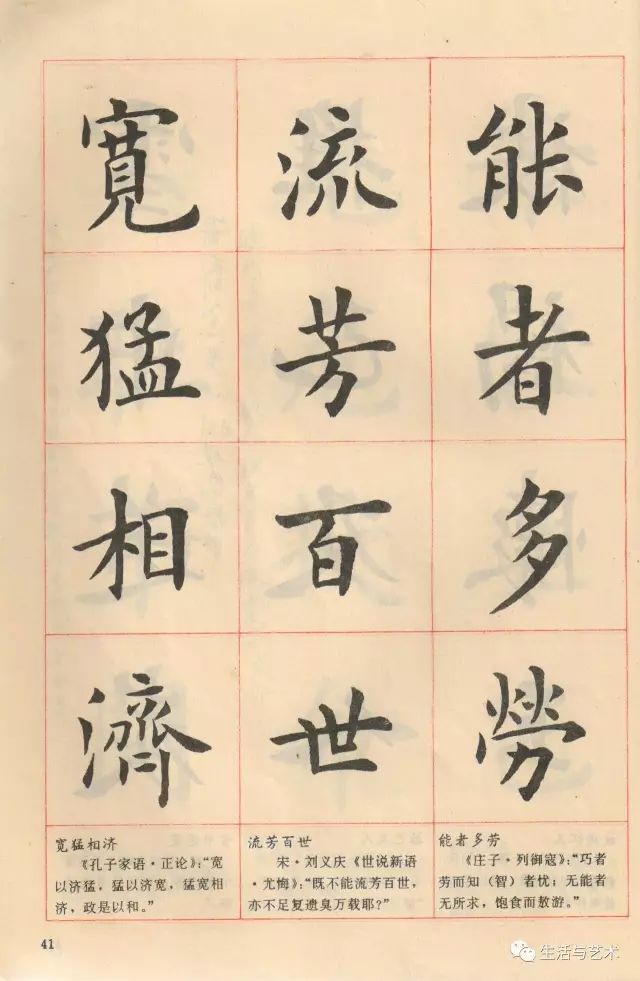 能者多勞
流芳百世
寬猛相濟
宽猛相济
《孔子家语·正论》：“宽
以济猛，猛以济宽，猛宽相
济，政是以和。”
流芳百世
宋·刘义庆《世说新语
·尤悔》：“既不能流芳百世，
亦不足复遗臭万载耶？”
能者多劳
《庄子·列御寇》：“巧者
劳而知（智）者忧；无能者
无所求，饱食而敖游。”
41
生活与艺术